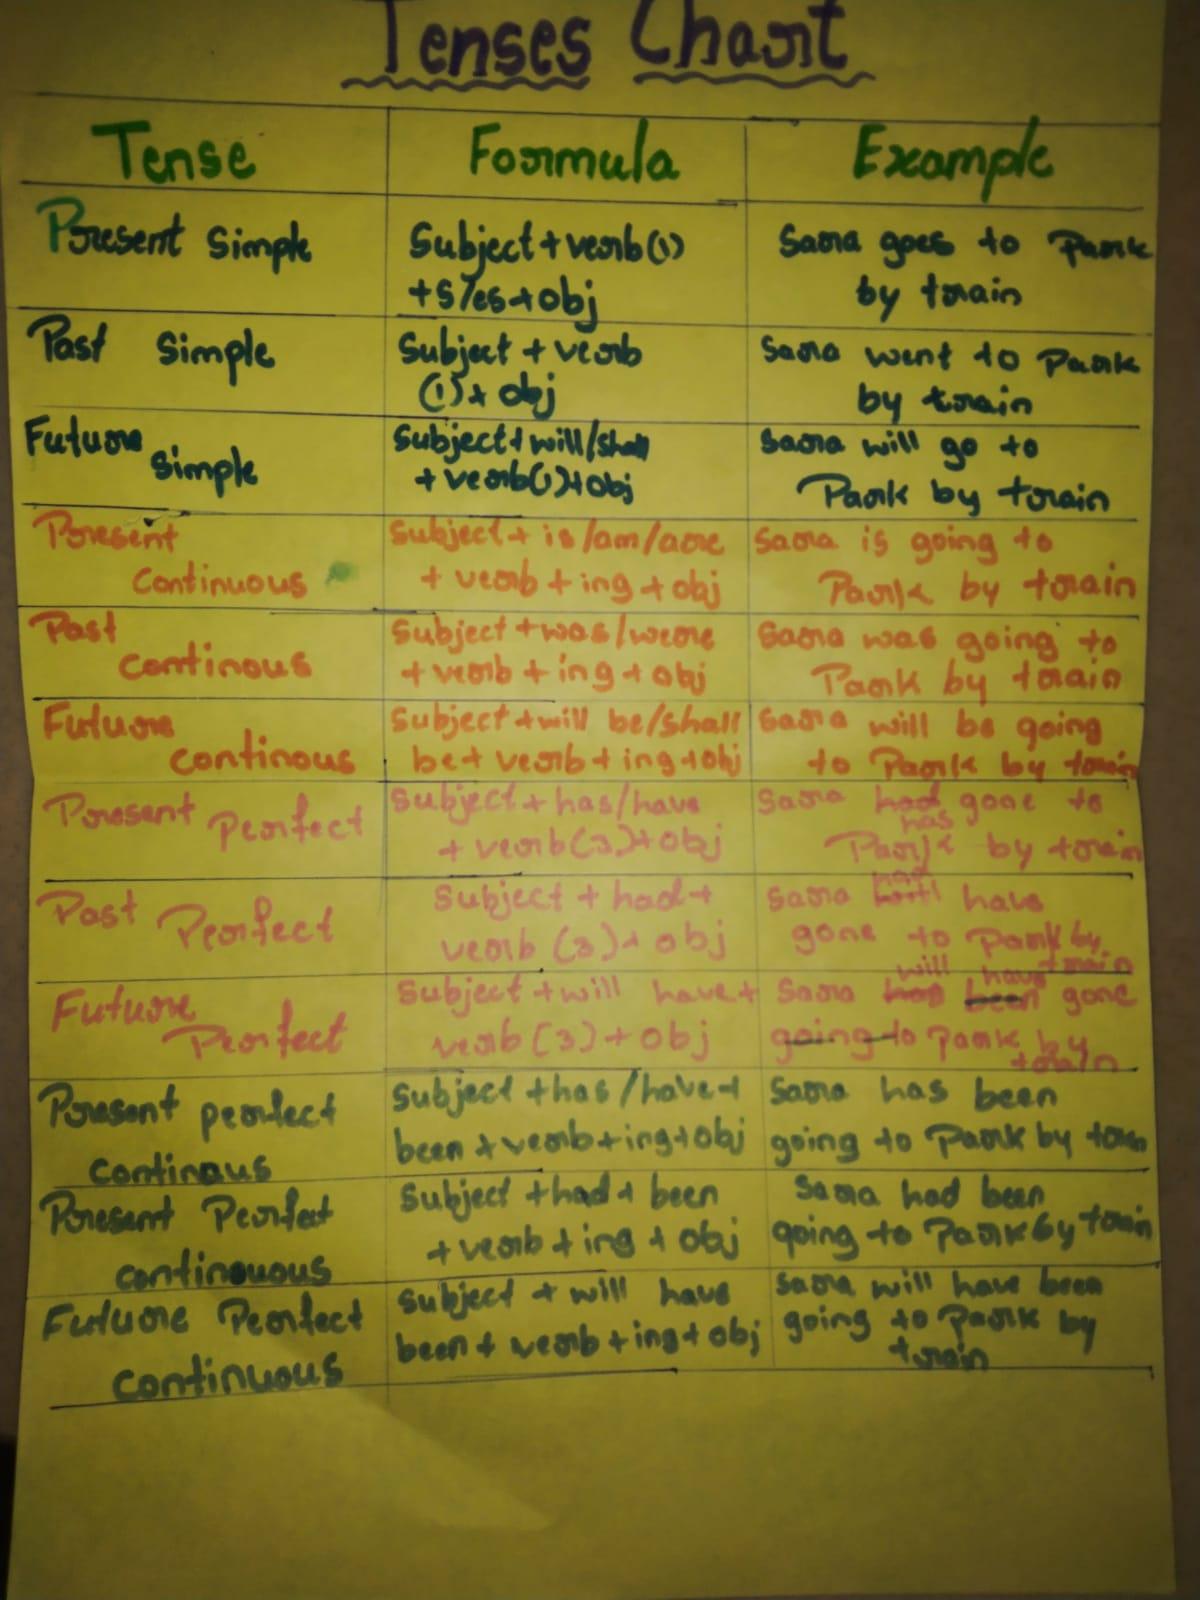 Tenses Chart
Tense Formula Example
Present Simple
Subject + verb (1)
+ s/es + obj
Sara goes to Park
by train
Past Simple
Subject + verb
(1) + obj
Sara went to Park
by train
Future
Simple
Subject + will/shall
+ verb(1) + obj
Sara will go to
Park by train
Present
Continuous
Subject + is/am/are
+ verb + ing + obj
Sara is going to
Park by train
Past
Continous
Subject + was/were
+ verb + ing + obj
Sara was going to
Park by train
Future
continous
Subject + will be/shall
be + verb + ing + obj
Sara will be going
to Park by train
Present Perfect
Subject + has/have
+ verb(3) + obj
Sara had gone to
has
Park by train
Past Perfect
Subject + had +
verb (3) + obj
had
Sara have
gone to Park by
train
Future
Perfect
Subject + will have +
verb (3) + obj
will have
Sara has been gone
going to Park by
train
Present perfect
continous
Subject + has/have +
been + verb + ing + obj
Sara has been
going to Park by train
Present Perfect
continouous
Subject + had + been
+ verb + ing + obj
Sara had been
going to Park by train
Future Perfect
continuous
Subject + will have
been + verb + ing + obj
Sara will have been
going to Park by
train